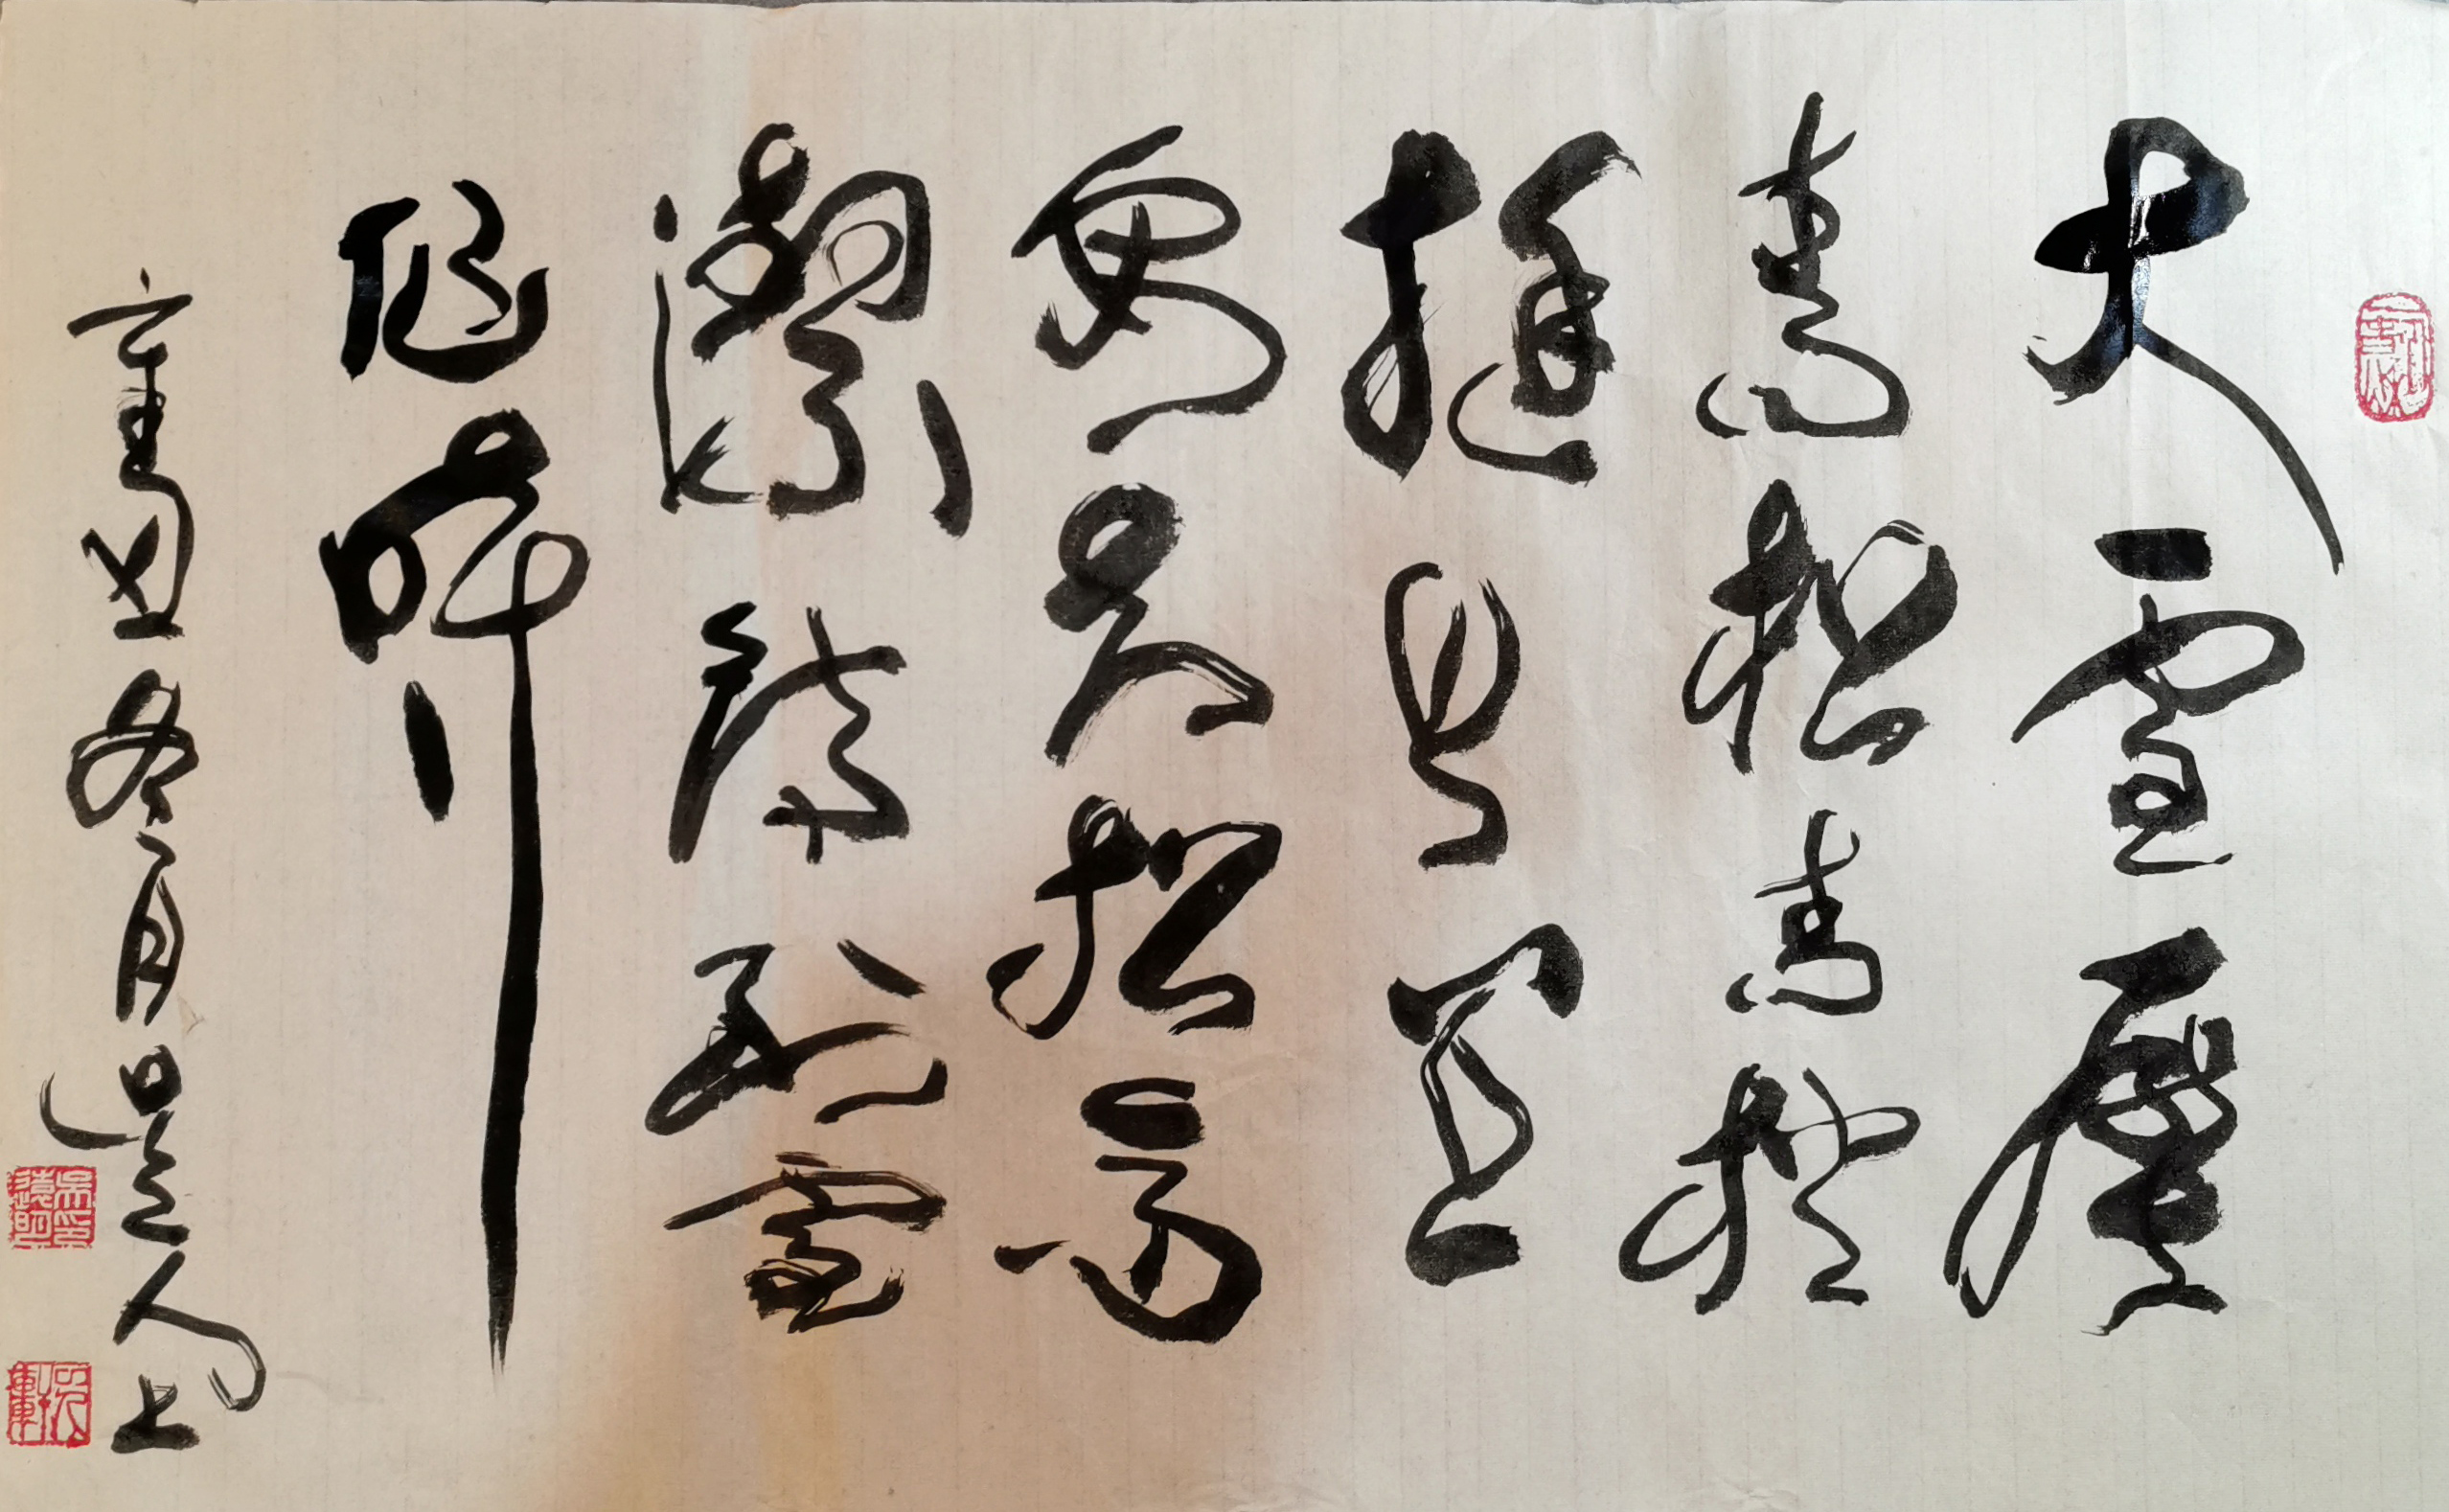 大雪壓
青松青松
挺且直
要知松高
潔待到雪
化時
辛丑冬月 人上